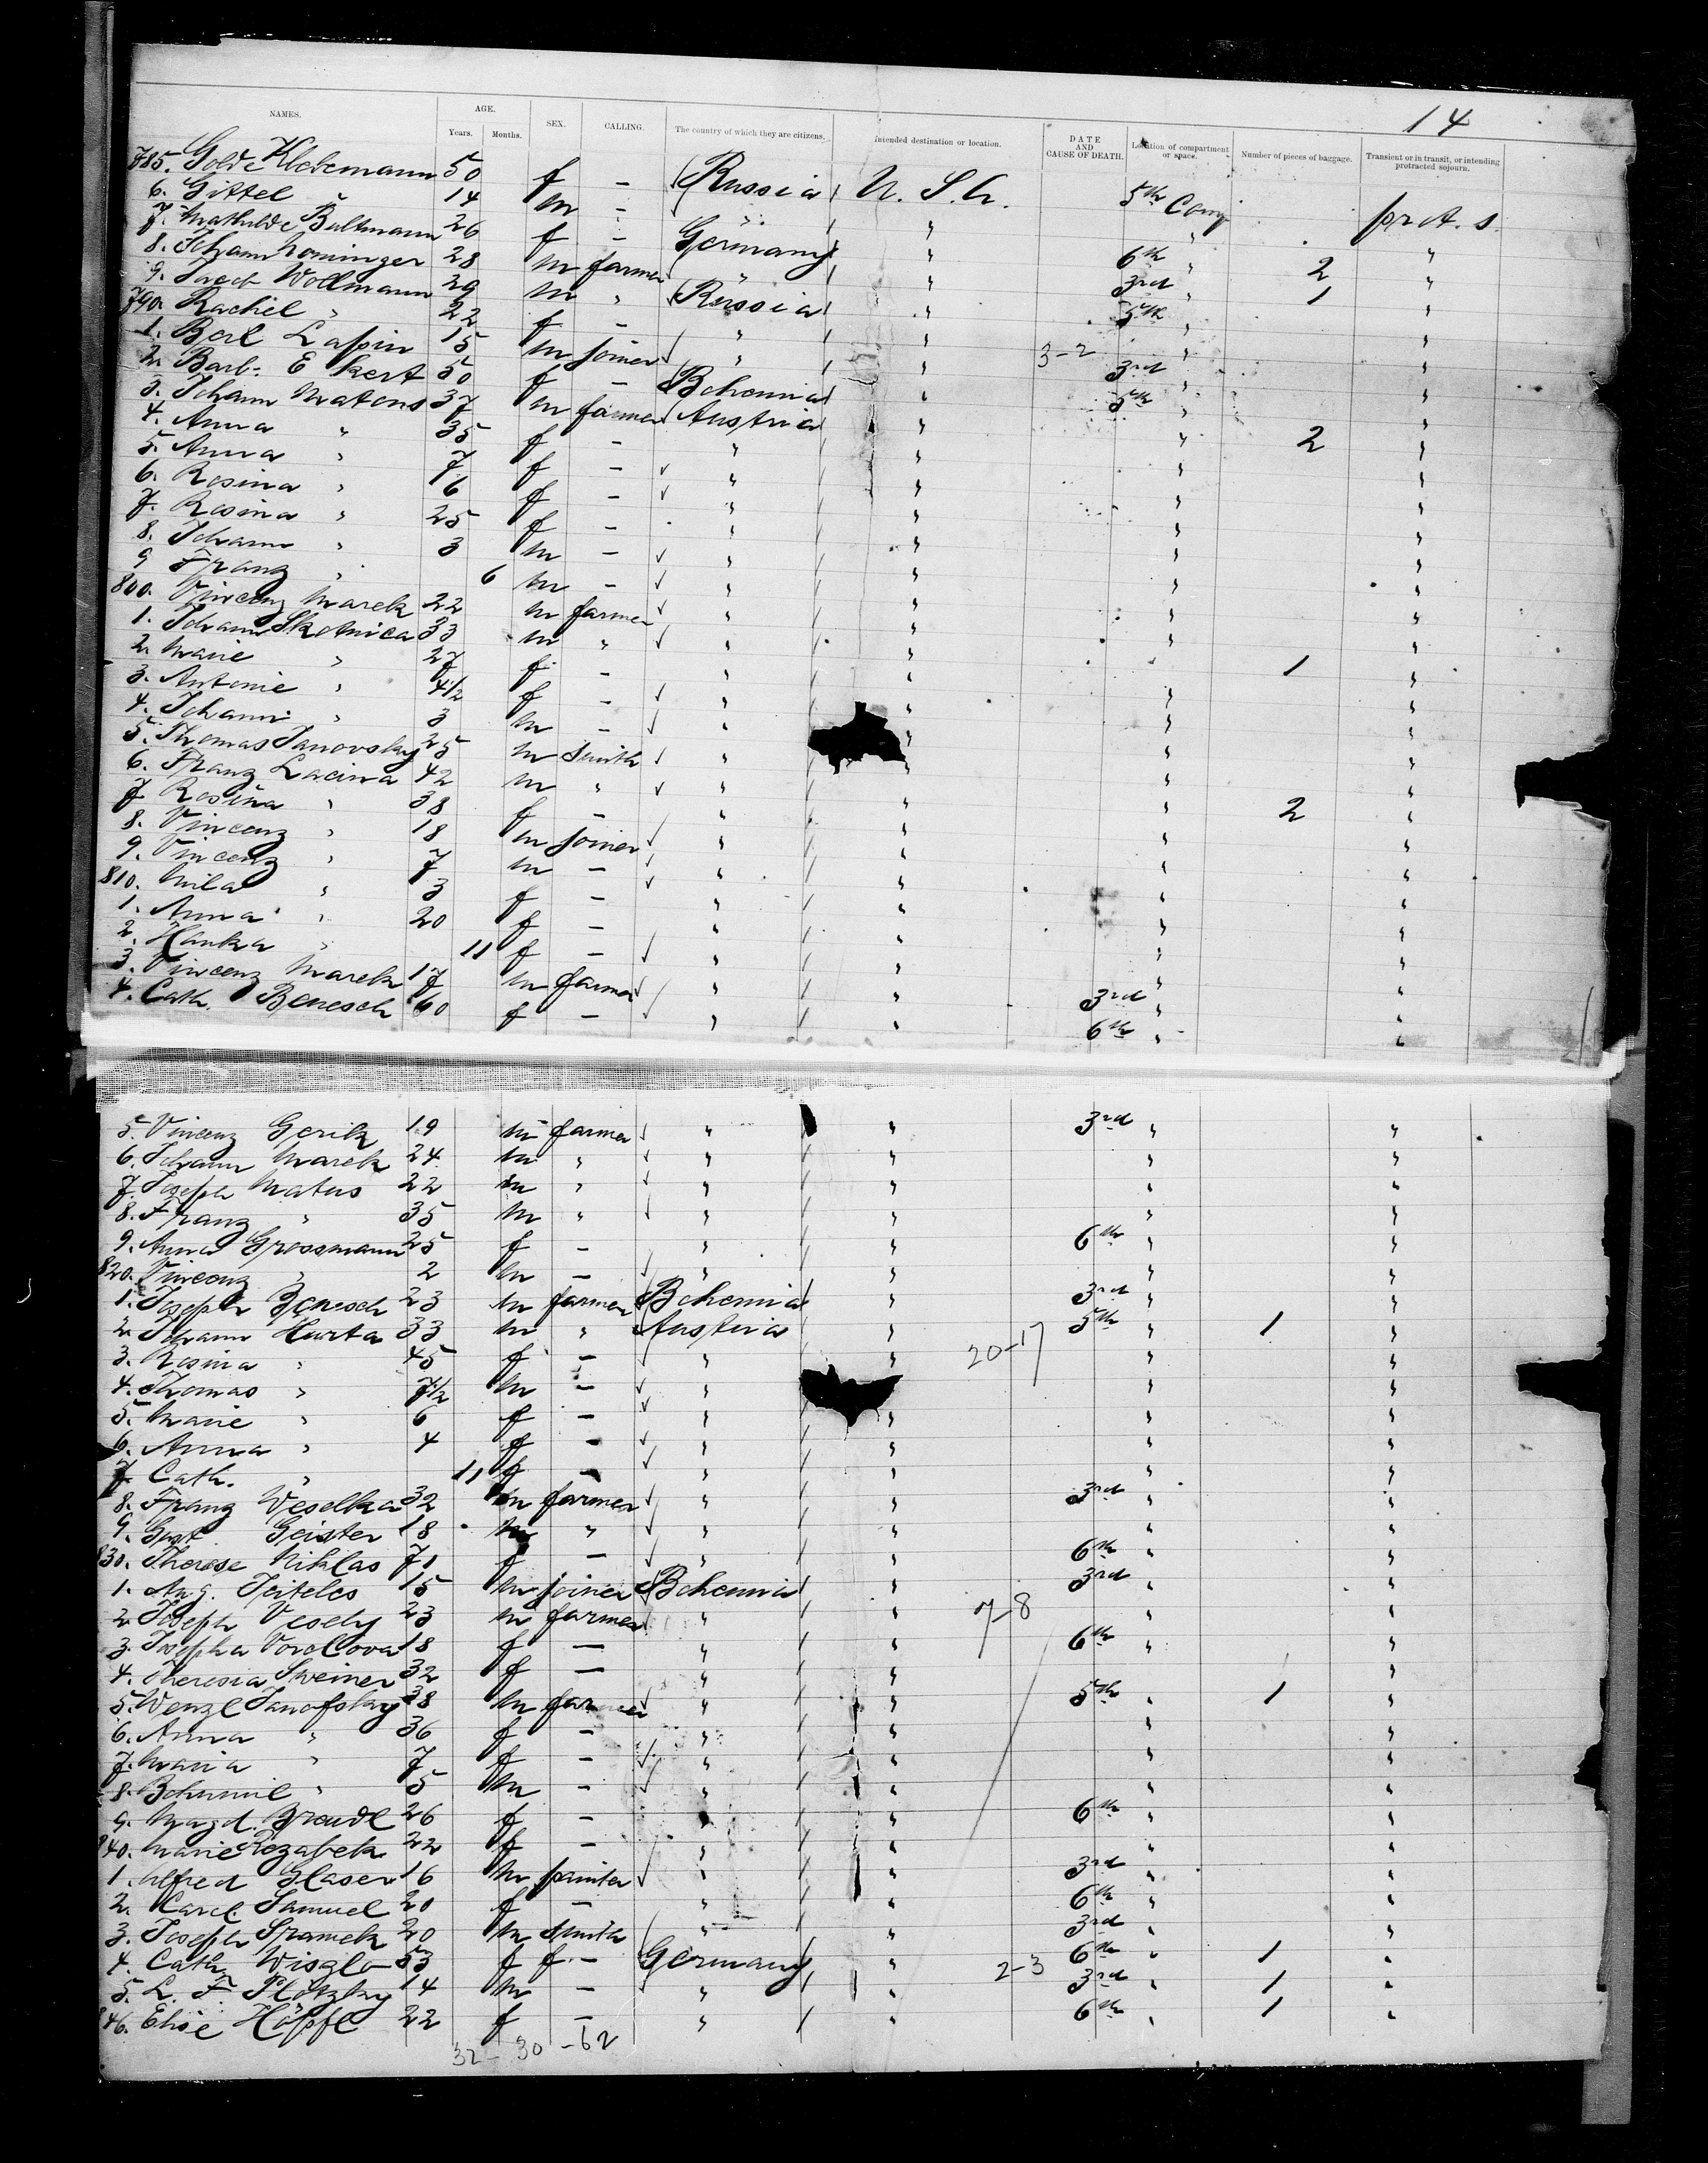 14
NAMES. AGE. Years. Months. SEX. CALLING. The country of which they are citizens. Intended destination or location. DATE AND CAUSE OF DEATH. Location of compartment or space. Number of pieces of baggage. Transient or in transit, or intending protracted sojourn.
785. Golde 50 f - Russia U. S. A. 5th Comp prot. s.
6. Gittel " 14 m - " " " "
7. Mathilde Bultmann 26 f - Germany " 6th " "
8. Johann 28 m farmer " " 3rd " 2 "
9. Jacob Wollmann 29 m " Russia " 5th " 1 "
790. Rachel " 22 f - " " " "
1. Berl Lapin 15 m joiner " " 3-2 3rd " "
2. Barb. Ekert 50 f - Bohemia " 5th " "
3. Johann Matous 37 m farmer Austria " " 2 "
4. Anna " 35 f - " " " "
5. Anna " 7 f - " " " "
6. Rosina " 6 f - " " " "
7. Rosina " 25 f - " " " "
8. Johann " 3 m - " " " "
9 Franz " 6 m - " " " "
800. Vincenz Marek 22 m farmer " " " "
1. Johann Skotnica 33 m " " " " 1 "
2. Marie " 27 f - " " " "
3. Antonie " 4 1/2 f - " " " "
4. Johann " 3 m - " " " "
5. Thomas Janovsky 25 m smith " " " "
6. Franz Lacina 42 m " " " " 2 "
7 Rosina " 38 f - " " " "
8. Vincenz " 18 m joiner " " " "
9. Vincenz " 7 m - " " " "
810. Mila " 3 f - " " " "
1. Anna " 20 f - " " " "
2. Hanka " 11 f - " " " "
3. Vincenz Marek 17 m farmer " " 3rd " "
4. Cath. Benesch 60 f - " " 6th " "
5. Vincenz Gerik 19 m farmer " " 3rd " "
6. Johann Marek 24 m " " " " "
7. Joseph Matus 22 m " " " " "
8. Franz " 35 m " " " " "
9. Anna Grossmann 25 f - " " 6th " "
820. Vincenz " 2 m - " " " "
1. Joseph Benesch 23 m farmer Bohemia " 3rd " "
2. Johann Hurta 33 m " Austria " 5th " 1 "
3. Rosina " 45 f - " " 20-17 " "
4. Thomas " 7 1/2 m - " " " "
5. Marie " 6 f - " " " "
6. Anna " 4 f - " " " "
7. Cath. " 11 f - " " " "
8. Franz Weselka 32 m farmer " " 3rd " "
9. Gust. Geister 18 m " " " " "
830. Therese Niklas 71 f - " " 6th " "
1. Aug. Teiteles 15 m joiner Bohemia " 3rd " "
2. Joseph Vesely 23 m farmer " " 7-8 " "
3. Josepha 18 f - " " 6th " "
4. Theresia Sweiner 32 f - " " " "
5. Wenzl Janofsky 38 m farmer " " 5th " 1 "
6. Anna " 36 f - " " " "
7. Maria " 7 f - " " " "
8. Bohumil " 5 m - " " " "
9. Magd. 26 f - " " 6th " "
840. Marie Rezabek 22 f - " " " "
1. Alfred Glaser 16 m painter " " 3rd " "
2. Carol. Samuel 20 f - " " 6th " "
3. Joseph Sramek 20 m smith " " 3rd " "
4. Cath. Wisglo 53 f - Germany " 6th " 1 "
5. L. F. Plotzky 14 m - " " 2-3 3rd " 1 "
846. Elise Höpfl 22 f - " " 6th " 1 "
32 - 30 - 62